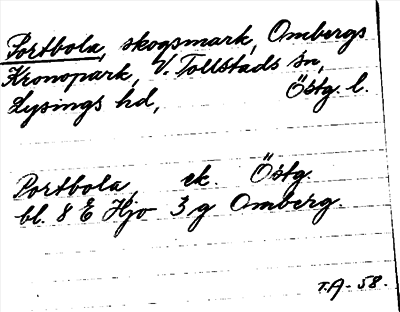 Portbola, skogsmark, Ombergs
Kronopark, V. Tollstads sn,
Lysings hd, Östg. l.
Portbola, ek. Östg.
bl. 8 E Hjo 3 g Omberg.
T.A - 58.